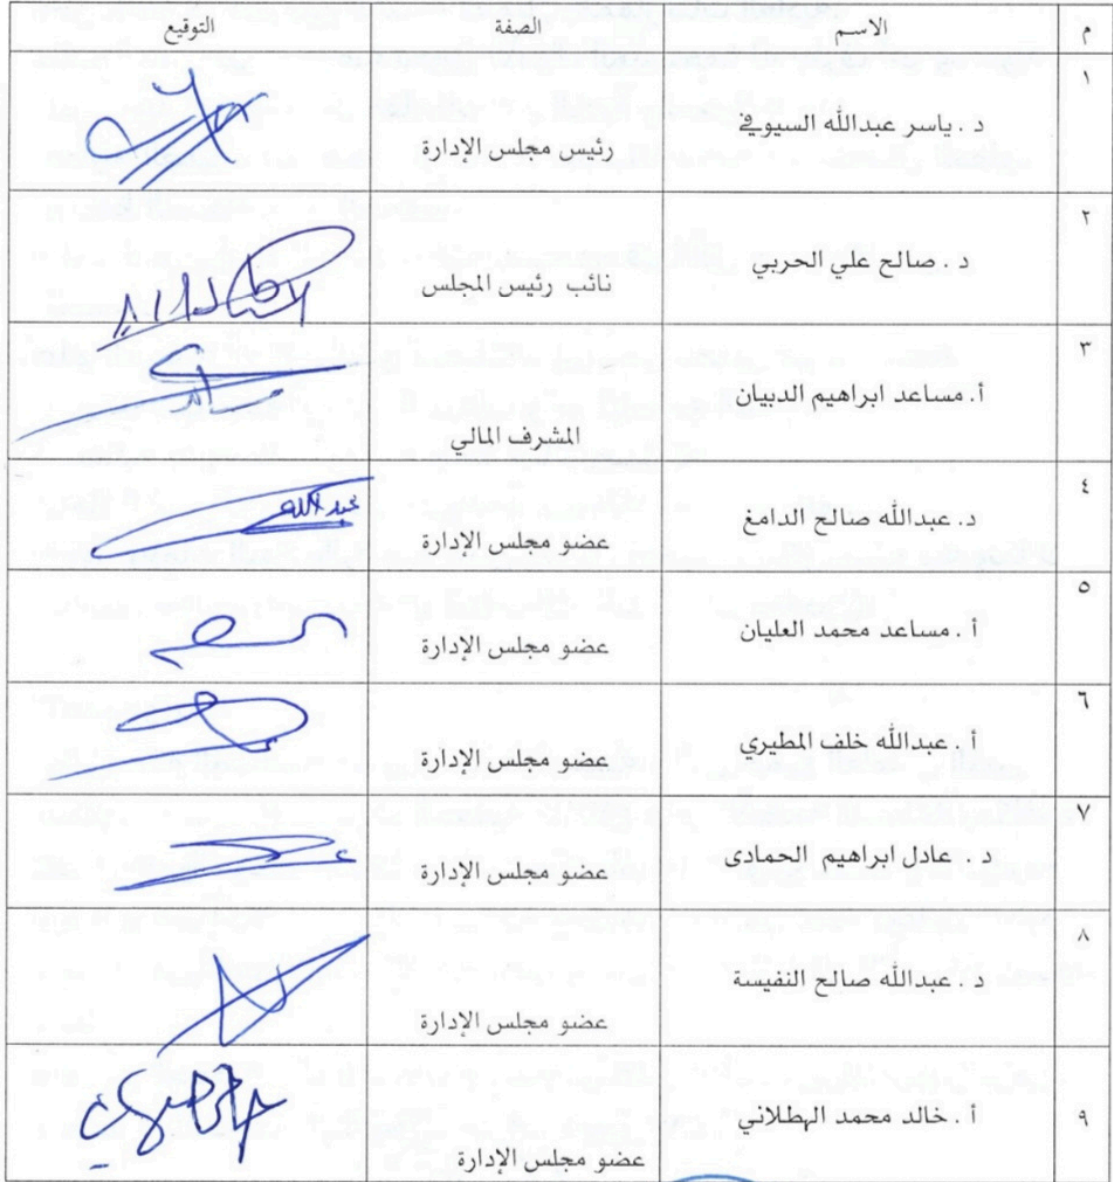 م الاسم الصفة التوقيع
١ د . ياسر عبدالله السيوفي رئيس مجلس الإدارة
٢ د . صالح علي الحربي نائب رئيس المجلس
٣ أ. مساعد ابراهيم الدبيان المشرف المالي
٤ د. عبدالله صالح الدامغ عضو مجلس الإدارة عبدالله
٥ أ . مساعد محمد العليان عضو مجلس الإدارة
٦ أ . عبدالله خلف المطيري عضو مجلس الإدارة
٧ د . عادل ابراهيم الحمادى عضو مجلس الإدارة
٨ د . عبدالله صالح النفيسة عضو مجلس الإدارة
٩ أ . خالد محمد الهطلاني عضو مجلس الإدارة